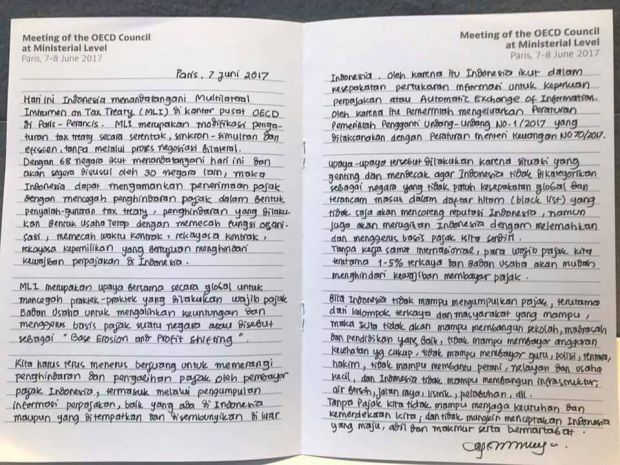 Meeting of the OECD Council
at Ministerial Level
Paris, 7-8 June 2017
Paris, 7 Juni 2017
Hari ini Indonesia menandatangani Multilateral
Instrumen on Tax Treaty (MLI) di kantor pusat OECD
di Paris - Perancis. MLI merupakan modifikasi penga-
turan tax treaty secara serentak, sinkron - simultan dan
efisien, tanpa melalui proses negosiasi bilateral.
Dengan 68 negara ikut menandatangani hari ini dan
akan segera disusul oleh 30 negara lain, maka
Indonesia dapat mengamankan penerimaan pajak
dengan mencegah penghindaran pajak dalam bentuk
penyalah-gunaan tax treaty, penghindaran yang dilaku-
kan Bentuk Usaha Tetap dengan memecah fungsi organi-
sasi, memecah waktu kontrak, rekayasa kontrak,
rekayasa kepemilikan yang bertujuan menghindari
kewajiban perpajakan di Indonesia.
MLI merupakan upaya bersama secara global untuk
mencegah praktek-praktek yang dilakukan wajib pajak
Badan Usaha untuk mengalihkan keuntungan dan
menggerus basis pajak suatu negara atau disebut
sebagai "Base Erosion and Profit Shifting"
Kita harus terus menerus berjuang untuk memerangi
penghindaran dan pengalihan pajak oleh pembayar
pajak Indonesia, termasuk melalui pengumpulan
informasi perpajakan, baik yang ada di Indonesia
maupun yang ditempatkan dan disembunyikan di luar
Meeting of the OECD Council
at Ministerial Level
Paris, 7-8 June 2017
Indonesia. oleh karena itu Indonesia ikut dalam
kesepakatan pertukaran informasi untuk keperluan
perpajakan atau Automatic Exchange of Information.
oleh karena itu Pemerintah mengeluarkan Peraturan
Pemerintah Pengganti Undang-undang No.1/2017 yang
dilaksanakan dengan Peraturan menteri keuangan No 70/2017.
upaya-upaya tersebut dilakukan karena situasi yang
genting dan mendesak agar Indonesia tidak dikategorikan
sebagai negara yang tidak patuh kesepakatan global dan
terancam masuk dalam daftar hitam (black list) yang
tidak saja akan mencoreng reputasi Indonesia, namun
juga akan merugikan Indonesia dengan melemahkan
dan menggerus basis pajak kita sendiri.
Tanpa kerja sama internasional, para wajib pajak kita
terutama 1-5% terkaya dan Badan Usaha akan mudah
menghindari kewajiban membayar pajak.
Bila Indonesia tidak mampu mengumpulkan pajak, terutama
dari kelompok terkaya dan masyarakat yang mampu,
maka kita tidak akan mampu membangun sekolah, madrasah
dan pendidikan yang baik, tidak mampu membayar anggaran
kesehatan yg cukup, tidak mampu membayar guru, polisi, tentara,
hakim, tidak mampu membantu petani, nelayan dan usaha
kecil, dan Indonesia tidak mampu membangun infrastruktur,
air bersih, jalan raya, listrik, pelabuhan, dll.
Tanpa Pajak kita tidak mampu menjaga keutuhan dan
kemerdekaan kita, dan tidak mungkin menciptakan Indonesia
yang maju, adil dan makmur serta bermartabat.